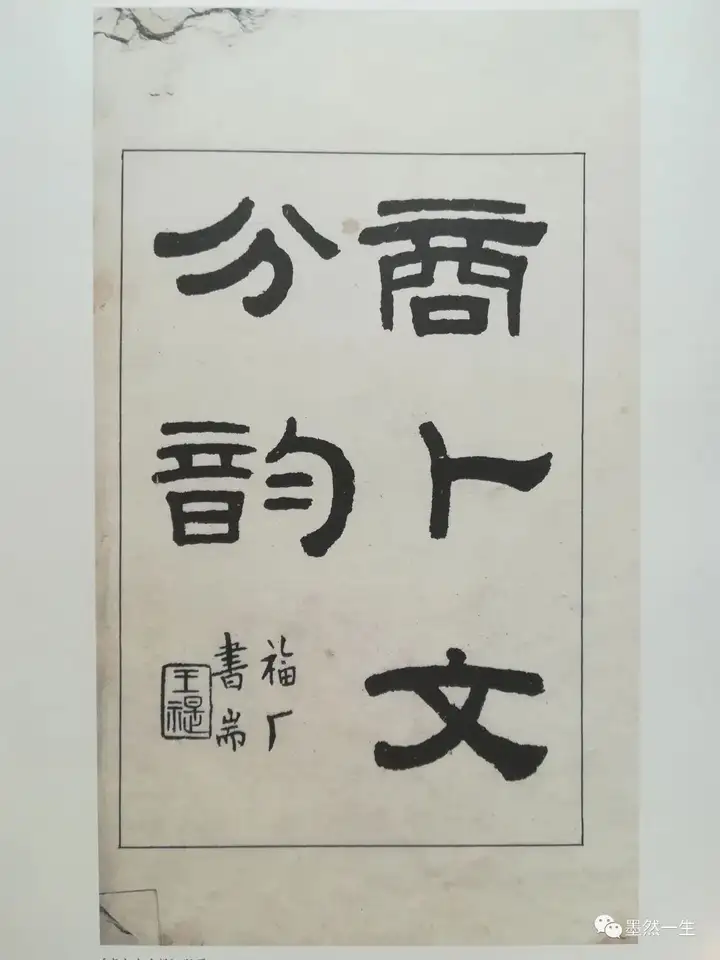 商卜文
分韵
福厂
書耑
王禔
墨然一生